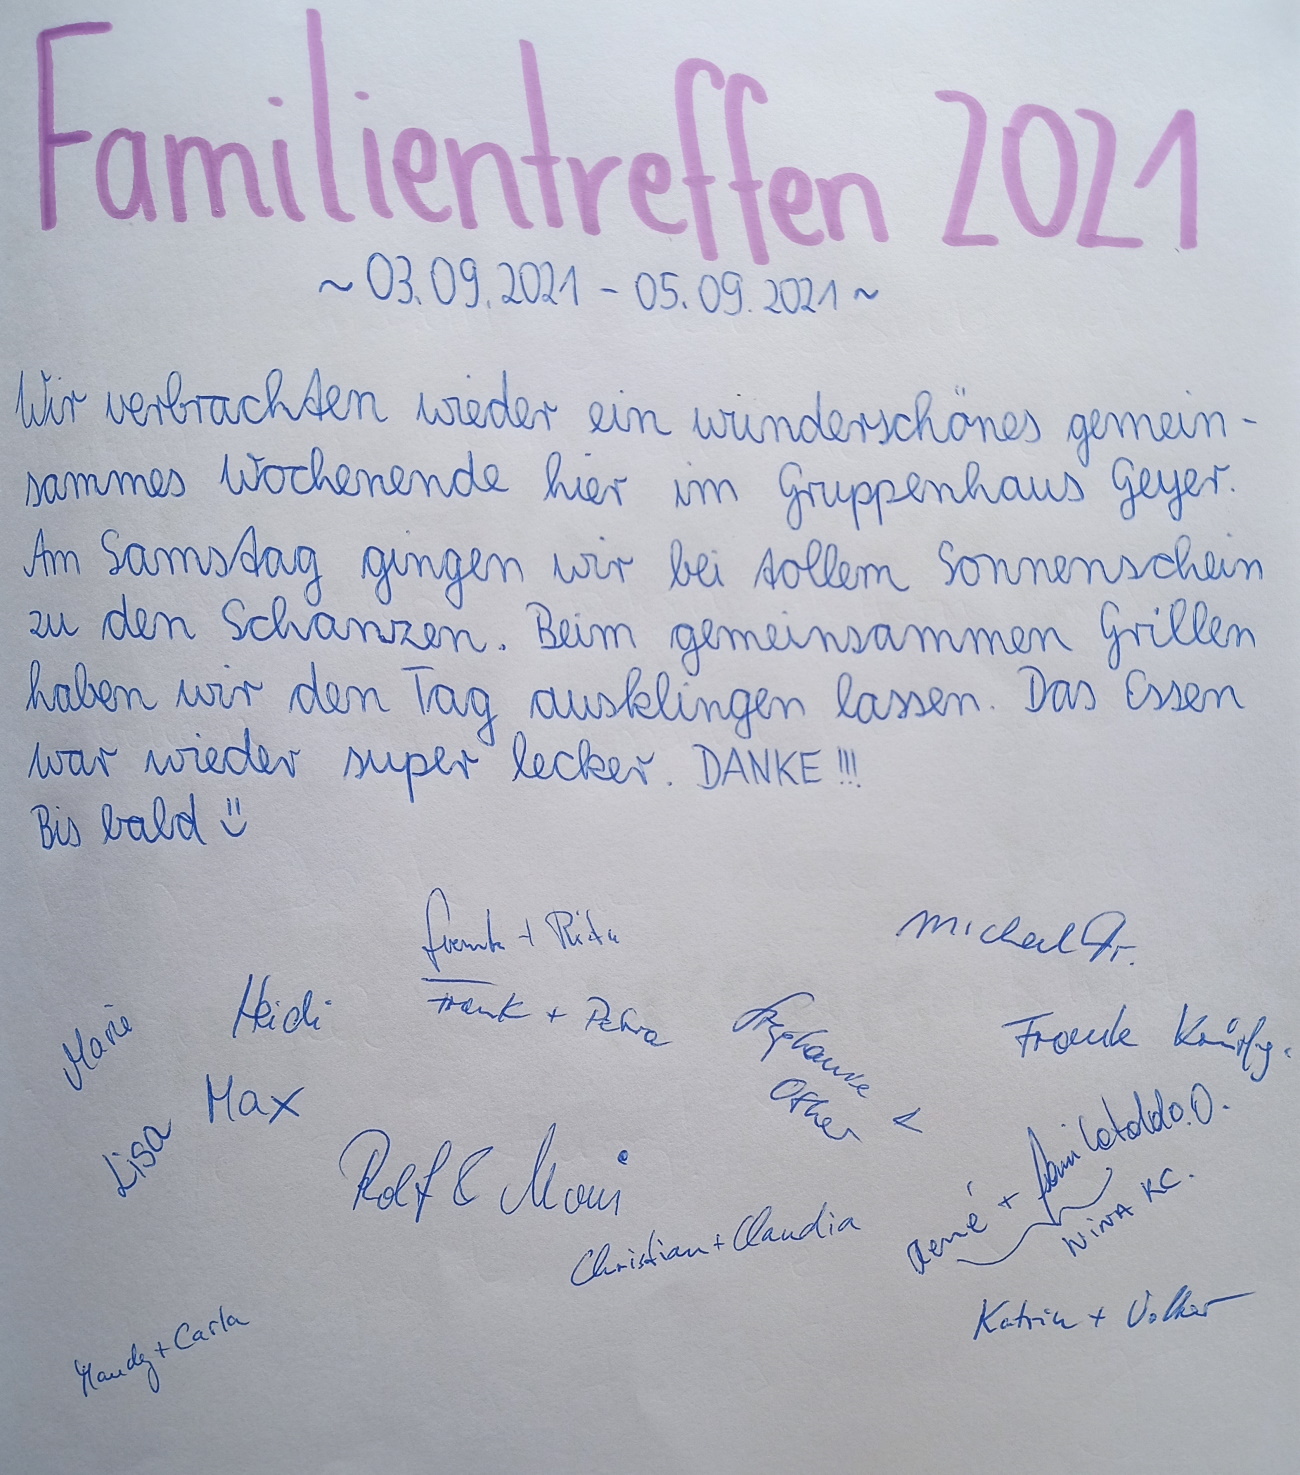 Familientreffen 2021
~ 03.09.2021 - 05.09.2021 ~
Wir verbrachten wieder ein wunderschönes gemein-
sammes Wochenende hier im Gruppenhaus Geyer.
Am Samstag gingen wir bei tollem Sonnenschein
zu den Schanzen. Beim gemeinsammen Grillen
haben wir den Tag ausklingen lassen. Das Essen
war wieder super lecker. DANKE !!!
Bis bald
+ Rita
Michael
Marie
Heidi
Frank + Petra
Stephanie &
Frank
Max
Lisa
Rolf & Moni
René +
NINA KC.
Christian + Claudia
Katrin + Volker
Mandy + Carla